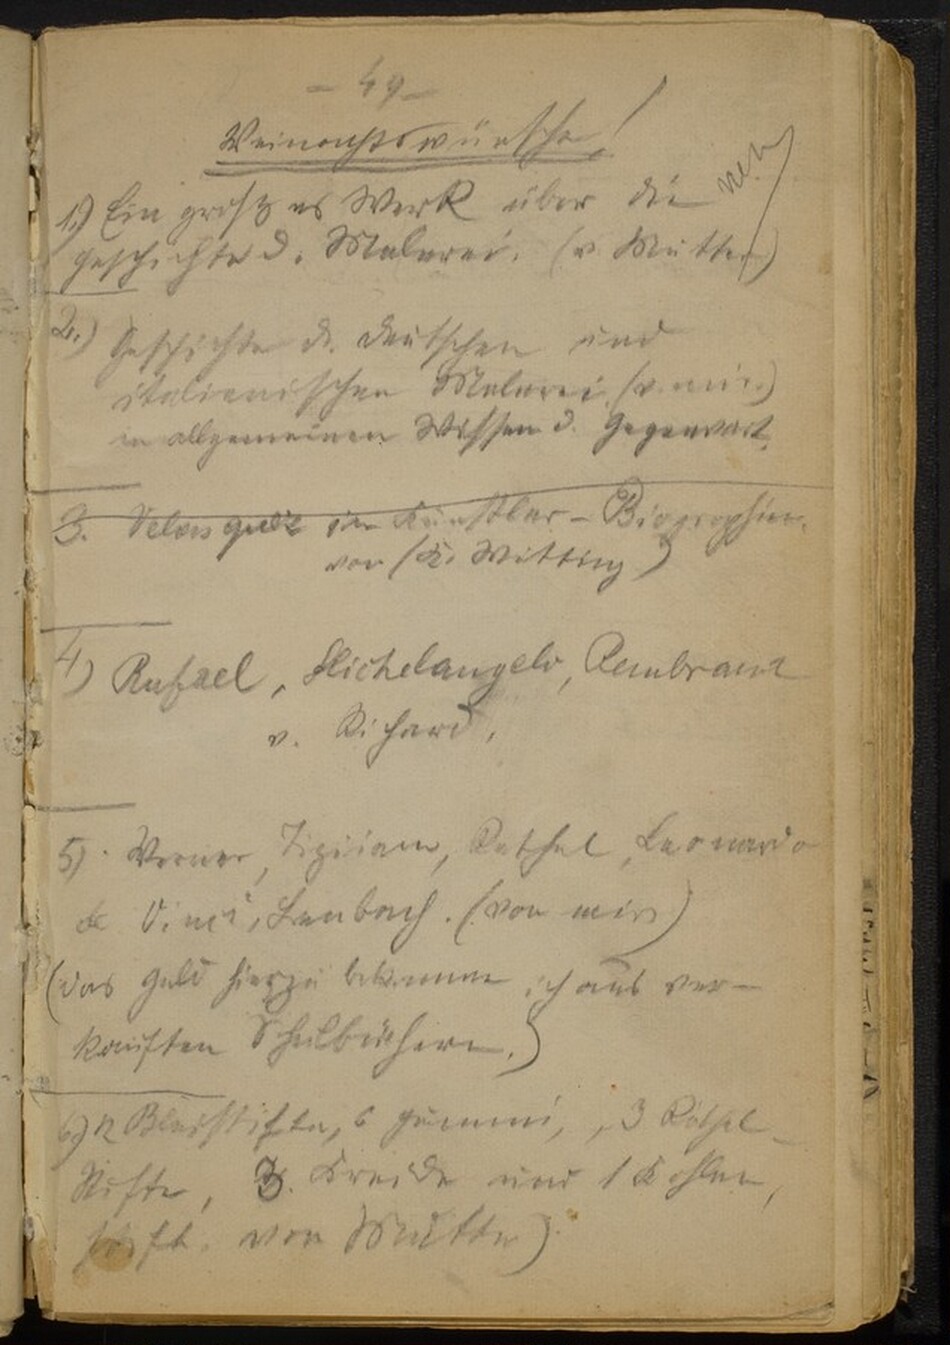 - 49 -
Weinachtswünsche!
1.) Ein großes Werk über die
Geschichte d. Malerei. (v. Mutter)
2.) Geschichte d. deutschen und
italienischen Malerei (v. mir.)
in allgemeinen Wissen d. Gegenwart.
3. Velasquez in Künstler-Biographien.
von (K. Witting)
4) Rafael, Michelangelo, Rembrant
v. Richard,
5) Werner, Tiziian, Rethel, Leonardo
de Vinci, Lenbach. (von mir)
(das Geld hierzu bekomme ich aus ver-
kauften Schulbüchern.)
6) 12 Bleistifte, 6 Gummi, 3 Röthel-
Stifte, 3. Kreide und 1 Kohlen,
stift. von Mutter)